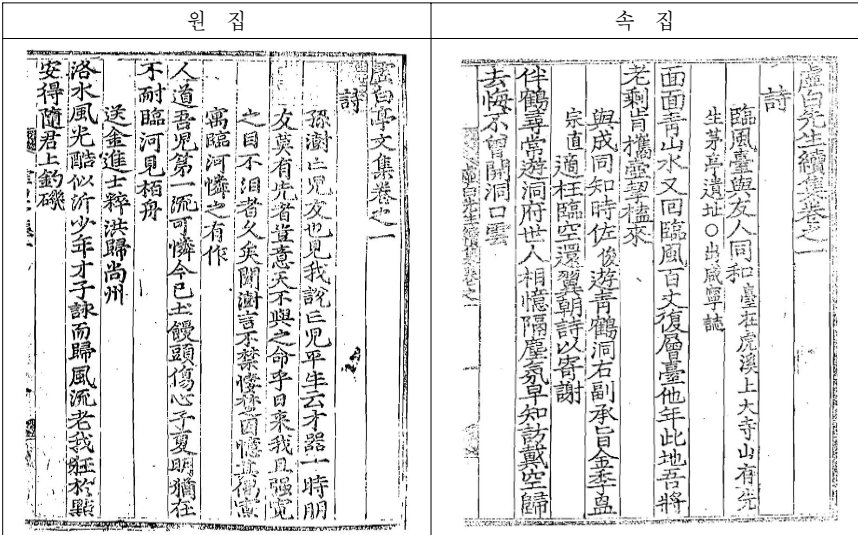 원 집
虛白亭文集卷之一
詩
孫澍亡兒友也見我說亡兒平生云才器一時朋
友莫有先者豈意天不與之命乎日來我且强寬
之目不淚者久矣聞澍言不禁悽愁因憶其
寓臨河憐之有作
人道吾兒第一流可憐今已土饅頭傷心子夏明猶在
不耐臨河見栢舟
送金進士粹洪歸尙州
洛水風光酷似沂少年才子詠而歸風流老我狂於點
安得隨君上釣磯
속 집
虛白先生續集卷之一
詩
臨風臺與友人同和 臺在虎溪上大寺山有先
生茅亭遺址○出咸寧誌
面面靑山水又回臨風百丈復層臺他年此地吾將
老剩肯携壺挈榼來
與成同知時佐 俊 遊靑鶴洞右副承旨金季昷
宗直 適枉臨空還翼朝詩以寄謝
伴鶴尋常遊洞府世人相憶隔塵氛早知訪戴空歸
去悔不曾開洞口雲
虛白先生續集卷之一